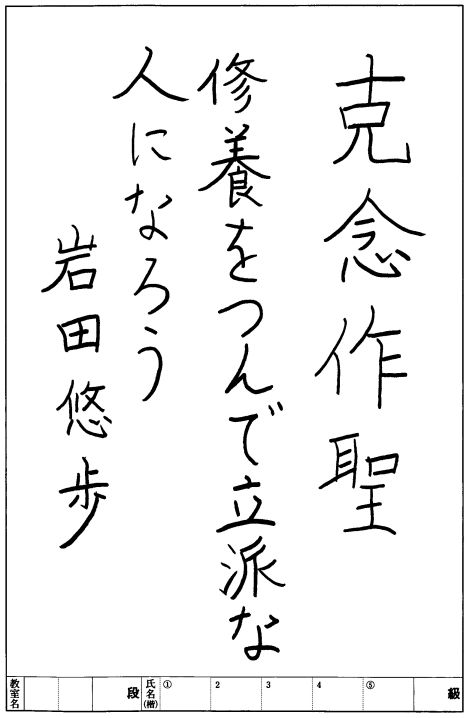 克念作聖
修養をつんで立派な
人になろう
岩田悠歩
教室名 段 氏名(楷) ① 2 3 4 ⑤ 級